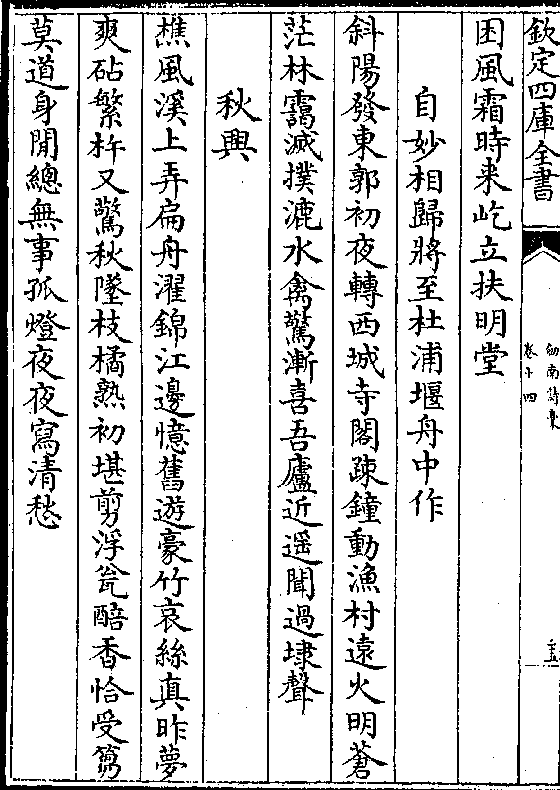 欽定四庫全書
劍南詩稾
卷十四
困風霜時来屹立扶明堂
自妙相歸將至杜浦堰舟中作
斜陽發東郭初夜轉西城寺閣疎鐘動漁村遠火明蒼
茫林靄滅撲漉水禽驚漸喜吾廬近遥聞過埭聲
秋興
樵風溪上弄扁舟濯錦江邊憶舊遊豪竹哀絲真昨夢
爽砧繁杵又驚秋墜枝橘熟初堪剪浮瓮醅香恰受篘
莫道身閒總無事孤燈夜夜寫清愁